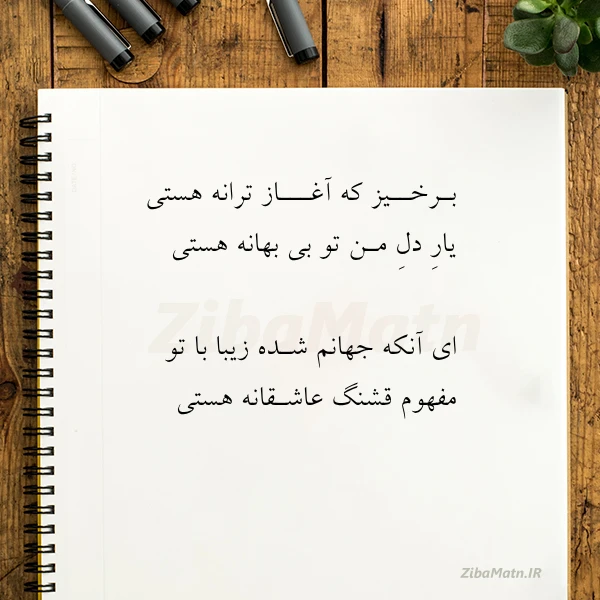 برخیز که آغاز ترانه هستی
یارِ دلِ من تو بی بهانه هستی
ای آنکه جهانم شده زیبا با تو
مفهوم قشنگ عاشقانه هستی
ZibaMatn
ZibaMatn.IR